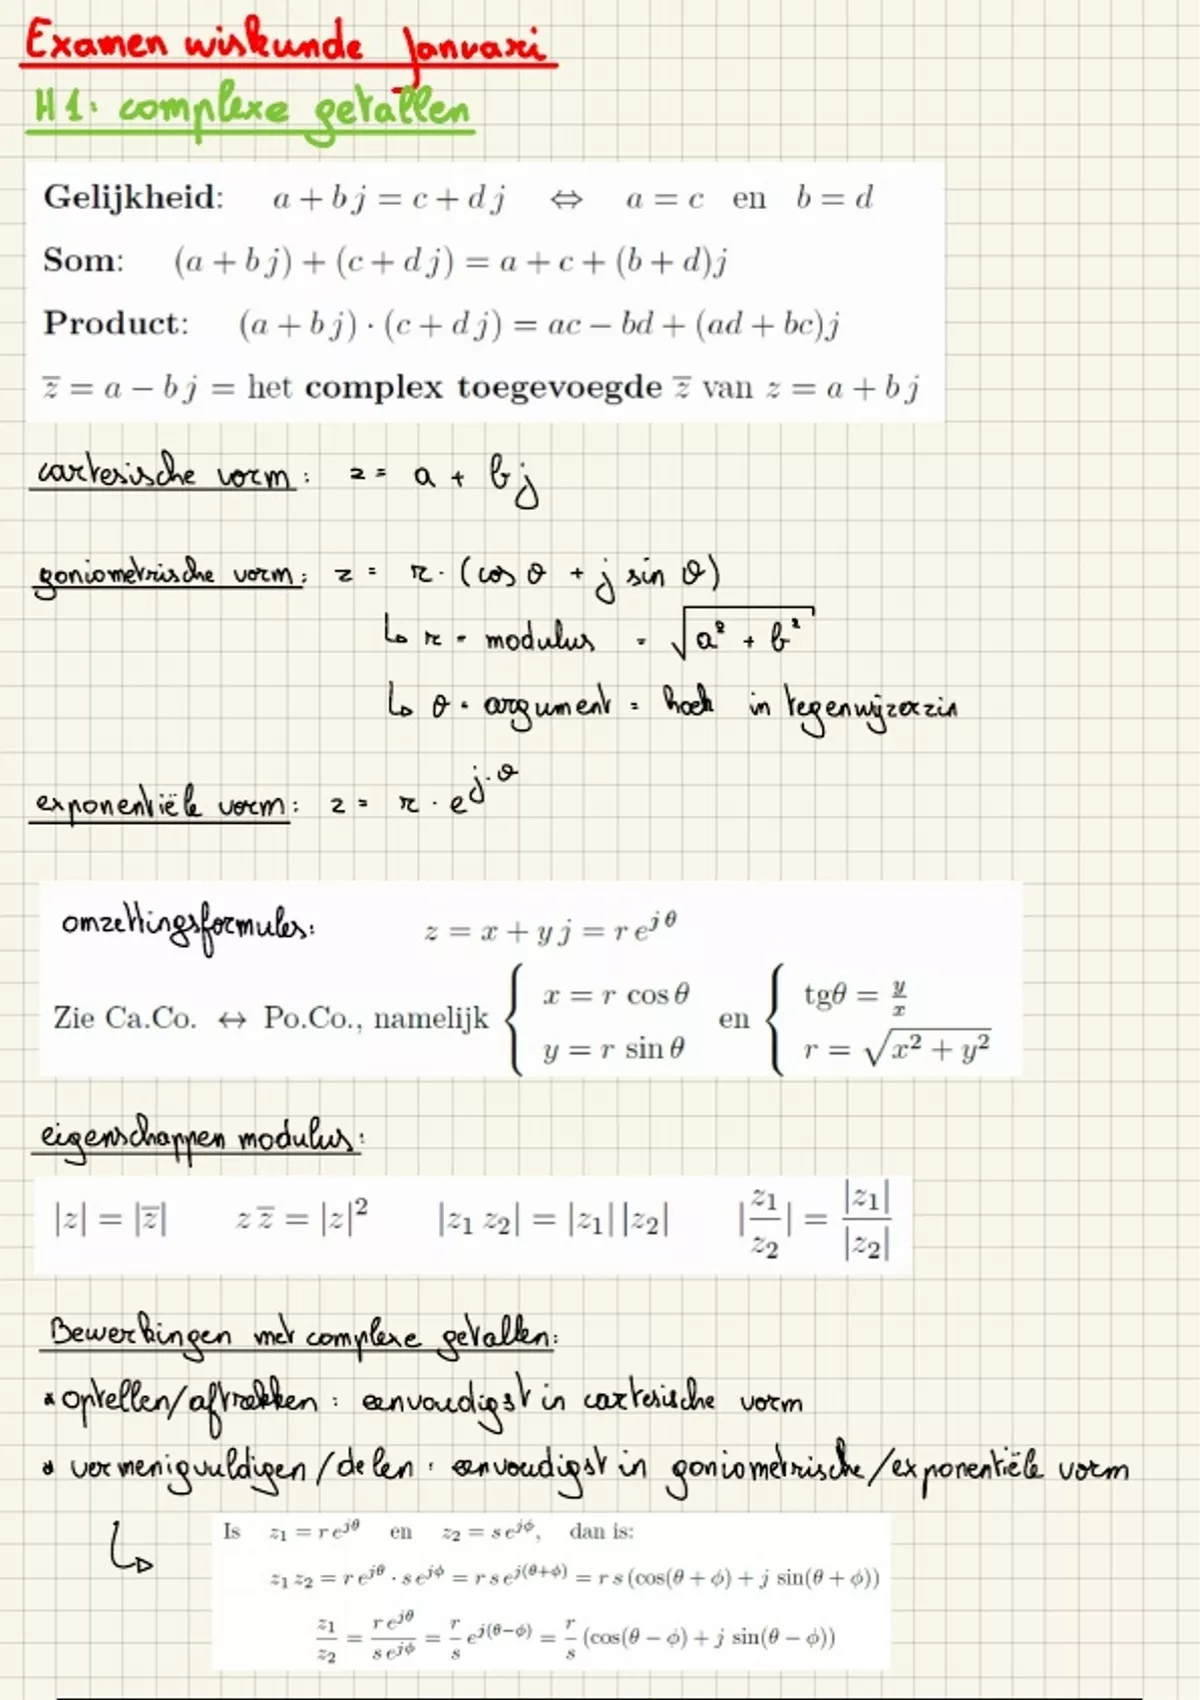 Examen wiskunde Januari
H1: complexe getallen
Gelijkheid: a + b j = c + d j ⇔ a = c en b = d
Som: (a + b j) + (c + d j) = a + c + (b + d)j
Product: (a + b j) · (c + d j) = ac − bd + (ad + bc)j
z̅ = a − b j = het complex toegevoegde z̅ van z = a + b j
cartesische vorm: z = a + b j
goniometrische vorm: z = r · (cos θ + j sin θ)
↳ r = modulus = √(a² + b²)
↳ θ = argument = hoek in tegenwijzerzin
exponentiële vorm: z = r · e^(j·θ)
omzettingsformules: z = x + y j = r e^(j θ)
Zie Ca.Co. ↔ Po.Co., namelijk { x = r cos θ y = r sin θ en { tgθ = y/x r = √(x² + y²)
eigenschappen modulus:
|z| = |z̅| z z̅ = |z|² |z₁ z₂| = |z₁| |z₂| |z₁/z₂| = |z₁|/|z₂|
Bewerkingen met complexe getallen:
* optellen/aftrekken : eenvoudigst in cartesische vorm
* vermenigvuldigen/delen : eenvoudigst in goniometrische/exponentiële vorm
↳ Is z₁ = r e^(jθ) en z₂ = s e^(jϕ), dan is:
z₁ z₂ = r e^(jθ) · s e^(jϕ) = r s e^(j(θ+ϕ)) = r s (cos(θ + ϕ) + j sin(θ + ϕ))
z₁/z₂ = r e^(jθ)/s e^(jϕ) = r/s e^(j(θ−ϕ)) = r/s (cos(θ − ϕ) + j sin(θ − ϕ))